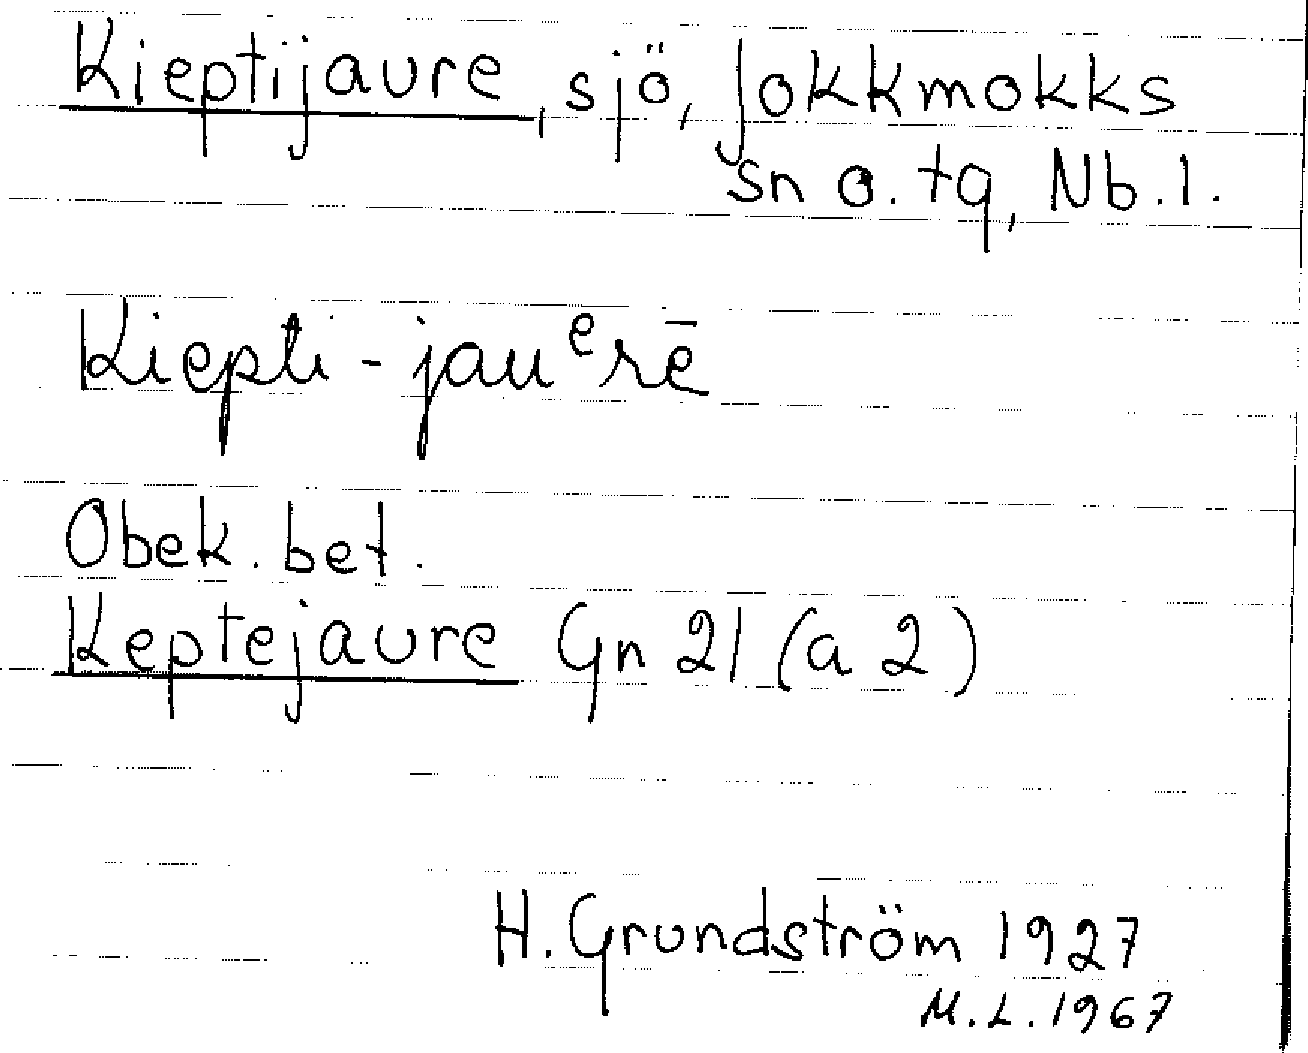 Kieptijaure, sjö, Jokkmokks
sn o. tg, Nb. l.
Kiepti-jauᵉrē
Obek. bet.
Keptejaure Gn 21 (a 2)
H. Grundström 1927
M. L. 1967